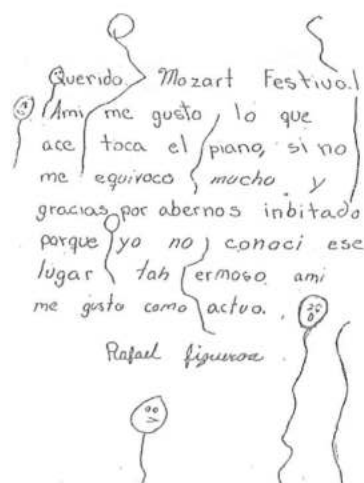 Querido Mozart Festival
Ami me gusto lo que
ace toca el piano, si no
me equivoco mucho y
gracias por abernos inbitado
porque yo no conoci ese
lugar tan ermoso ami
me gusto como actuo.
Rafael figueroa